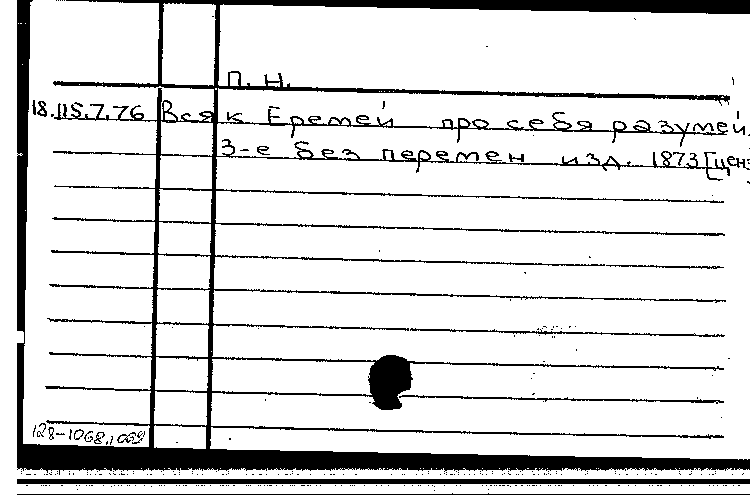 П. Н.
18.115.7.76 Всяк Еремей про себя разумей.
3-е без перемен изд. 1873 [ценз
128-1068,1069